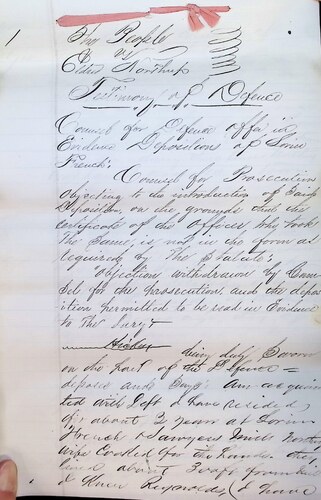 1
The People
vs
Northrup
Testimony of Defence
Counsel for Defence offer in
Evidence Depositions of
French.
Counsel for Prosecution
objecting to the introduction of said
Deposition, on the grounds that the
certificate of the Officer, who took
The Same, is not in the form as
required by The Statute.
Objection withdrawn by Coun
sel for the prosecution and the depos
ition permitted to be read in Evidence
to The Jury
being duly Sworn
on the part of the Defence =
deposes and Says: Am acquain
ted with Deft & have resided
for about 3 years at
French & Sawyers Mills
wife cooked for the hands. they
lived about from
& Knew Reynolds, (& have